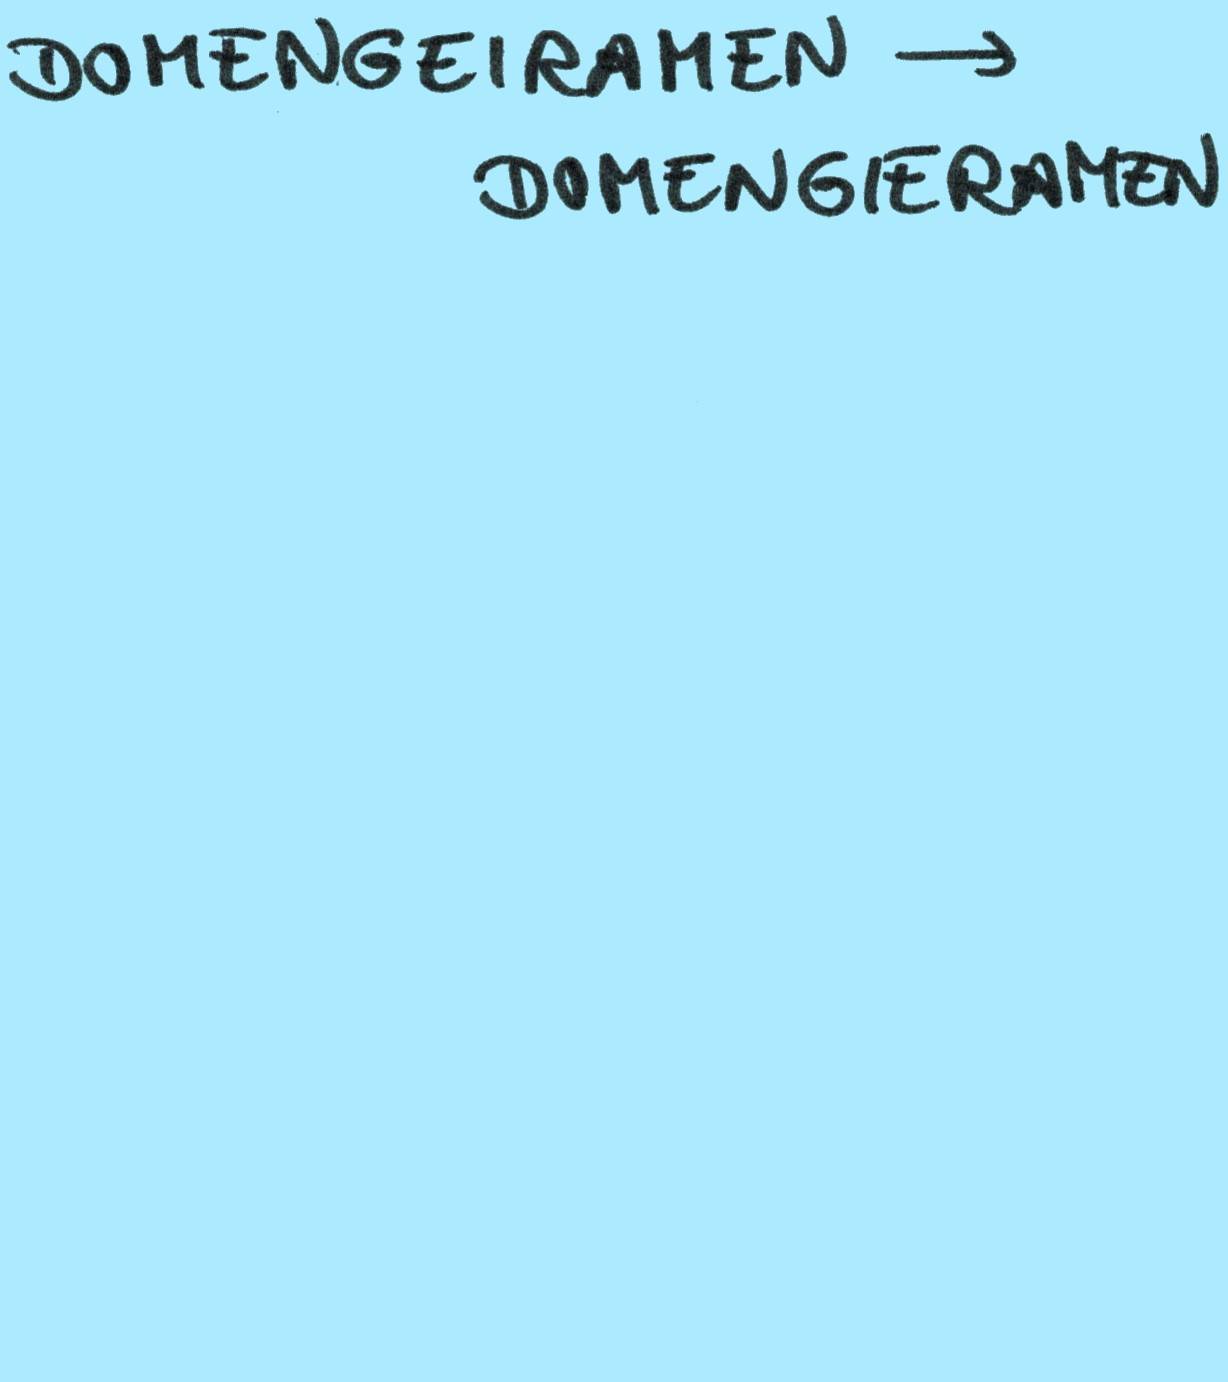 DOMENGEIRAMEN →
DOMENGIERAMEN